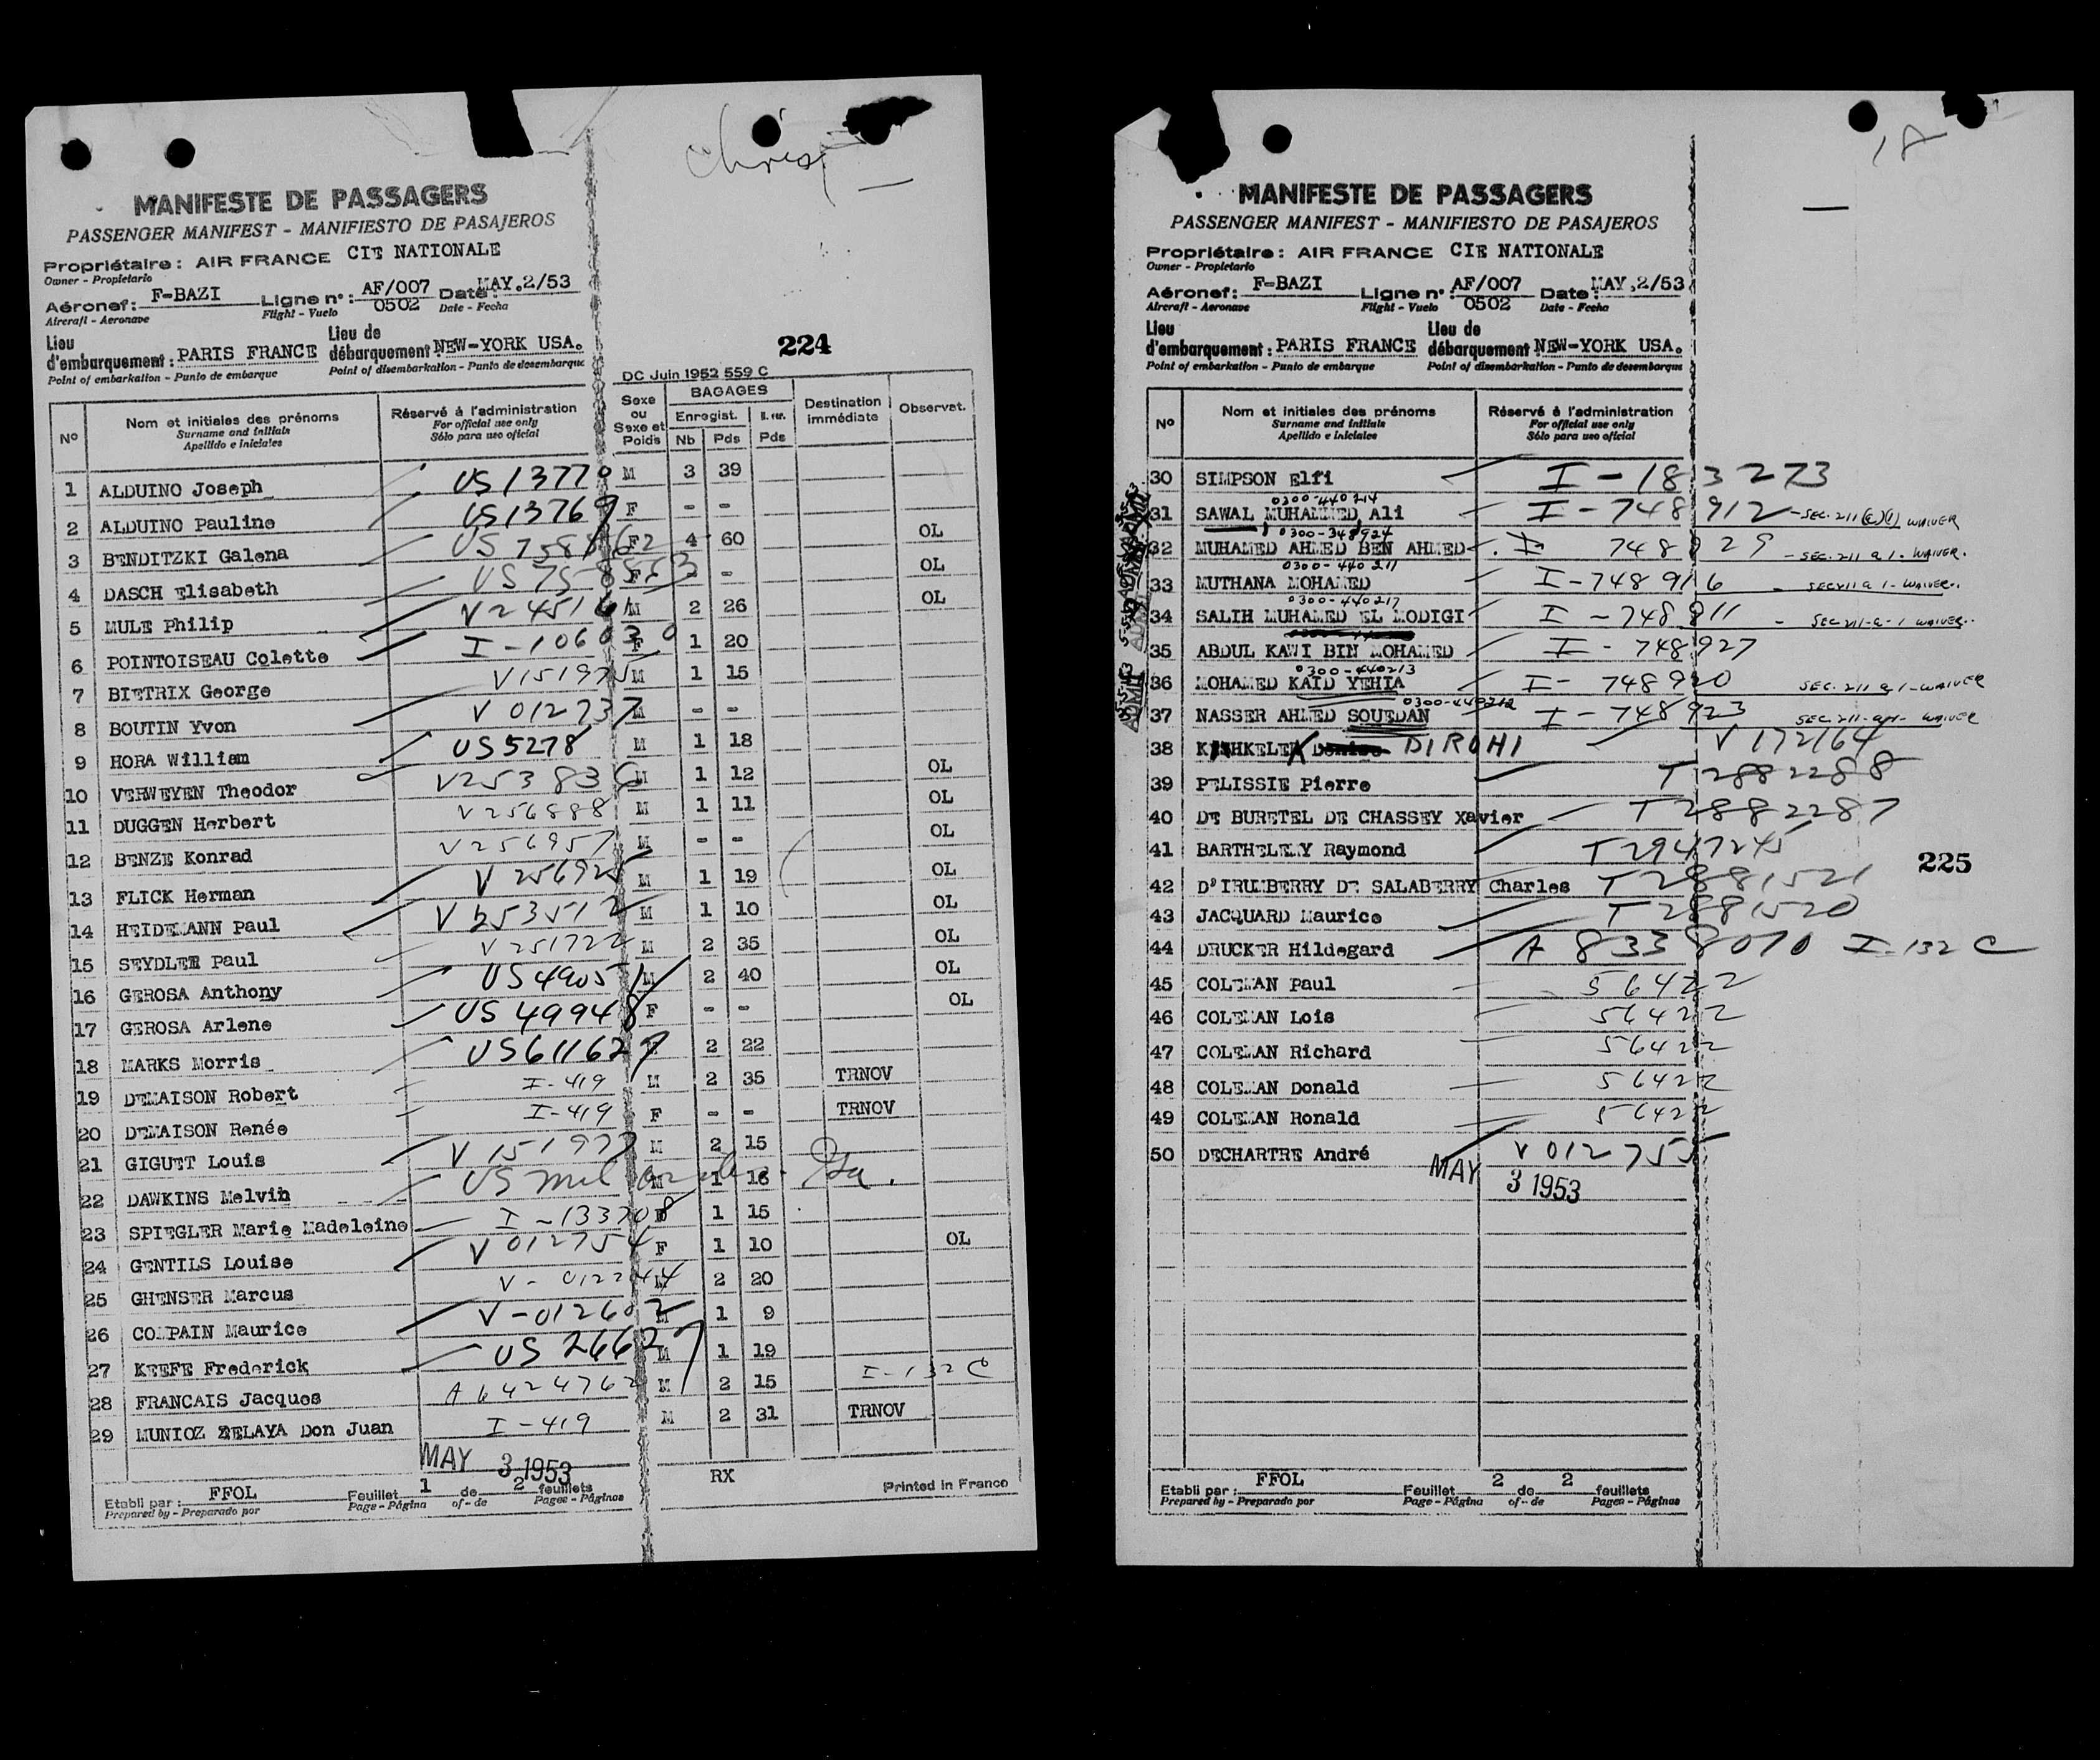 Christ
MANIFESTE DE PASSAGERS
PASSENGER MANIFEST - MANIFIESTO DE PASAJEROS
Propriétaire : AIR FRANCE CIE NATIONALE
Owner - Propietario
Aéronef : F-BAZI Ligne n° : AF/007 0502 Date : MAY.2/53
Aircraft - Aeronave Flight - Vuelo Date - Fecha
Lieu d'embarquement : PARIS FRANCE Lieu de débarquement : NEW-YORK USA.
Point of embarkation - Punto de embarque Point of disembarkation - Punto de desembarque
224
DC Juin 1952 559 C
N° Nom et initiales des prénoms Réservé à l'administration Sexe ou Sexe et Poids BAGAGES Destination immédiate Observat.
Surname and initials For official use only Enregist.
Apellido e iniciales Sólo para uso oficial Nb Pds Pds
1 ALDUINO Joseph US 13770 M 3 39
2 ALDUINO Pauline US 13769 F - -
3 BENDITZKI Galena F 4 60 OL
4 DASCH Elisabeth F - - OL
5 MULE Philip M 2 26 OL
6 POINTOISEAU Colette I-106030 F 1 20
7 BIETRIX George V151975 M 1 15
8 BOUTIN Yvon V 012737 M - -
9 HORA William US 5278 M 1 18
10 VERWEYEN Theodor V253836 M 1 12 OL
11 DUGGEN Herbert V256888 M 1 11 OL
12 BENZE Konrad V256957 M - - OL
13 FLICK Herman V 256925 M 1 19 OL
14 HEIDEMANN Paul V 253512 M 1 10 OL
15 SEYDLER Paul V 251722 M 2 35 OL
16 GEROSA Anthony US 49051 M 2 40 OL
17 GEROSA Arlene US 49948 F - - OL
18 MARKS Morris US611627 2 22
19 DEMAISON Robert I-419 M 2 35 TRNOV
20 DEMAISON Renée I-419 F - - TRNOV
21 GIGUET Louis V 151977 M 2 15
22 DAWKINS Melvin US mil M 1 16
23 SPIEGLER Marie Madeleine I-133708 F 1 15
24 GENTILS Louise V 012754 F 1 10 OL
25 GHENSER Marcus V-012244 M 2 20
26 COMPAIN Maurice V-012602 M 1 9
27 KEEFE Frederick US 26627 M 1 19
28 FRANCAIS Jacques A 6424762 M 2 15 I-132 C
29 MUNIOZ ZELAYA Don Juan I-419 M 2 31 TRNOV
MAY 3 1953
RX
Etabli par : FFOL Feuillet 1 de 2 feuillets Printed in France
Prepared by - Preparado por Page - Página of - de Pages - Páginas
18
MANIFESTE DE PASSAGERS
PASSENGER MANIFEST - MANIFIESTO DE PASAJEROS
Propriétaire : AIR FRANCE CIE NATIONALE
Owner - Propietario
Aéronef : F-BAZI Ligne n° : AF/007 0502 Date : MAY,2/53
Aircraft - Aeronave Flight - Vuelo Date - Fecha
Lieu d'embarquement : PARIS FRANCE Lieu de débarquement NEW-YORK USA.
Point of embarkation - Punto de embarque Point of disembarkation - Punto de desembarque
N° Nom et initiales des prénoms Réservé à l'administration
Surname and initials For official use only
Apellido e iniciales Sólo para uso oficial
30 SIMPSON Elfi I-183273
0300-440214
31 SAWAL MUHAMMED Ali I-748912 - SEC. 211(c)(1) WAIVER
0300-348924
32 MUHAMED AHMED BEN AHMED I 748929 - SEC. 211 a 1 - WAIVER.
0300-440211
33 MUTHANA MOHAMED I-748916 - SEC 211 a 1 - WAIVER.
0300-440217
34 SALIH MUHAMED EL MODIGI I-748911 - SEC 211-a-1 WAIVER.
35 ABDUL KAWI BIN MOHAMED I-748927
0300-440213
36 MOHAMED KAID YEHIA I-748920 SEC. 211 a 1-WAIVER
0300-440212
37 NASSER AHMED SOUEDAN I-748923 SEC-211-a-1- WAIVER
38 DIROHI V 172164
39 PELISSIE Pierre T 2882288
40 DE BURETEL DE CHASSEY Xavier T 2882287
41 BARTHELEMY Raymond T2947245
225
42 D'IRUMBERRY DE SALABERRY Charles T 2881521
43 JACQUARD Maurice T 2881520
44 DRUCKER Hildegard A 8338070 I-132 C
45 COLEMAN Paul 56422
46 COLEMAN Lois 56422
47 COLEMAN Richard 56422
48 COLEMAN Donald 56422
49 COLEMAN Ronald 56422
50 DECHARTRE André V 012755
MAY 3 1953
Etabli par : FFOL Feuillet 2 de 2 feuillets
Prepared by - Preparado por Page - Página of - de Pages - Páginas